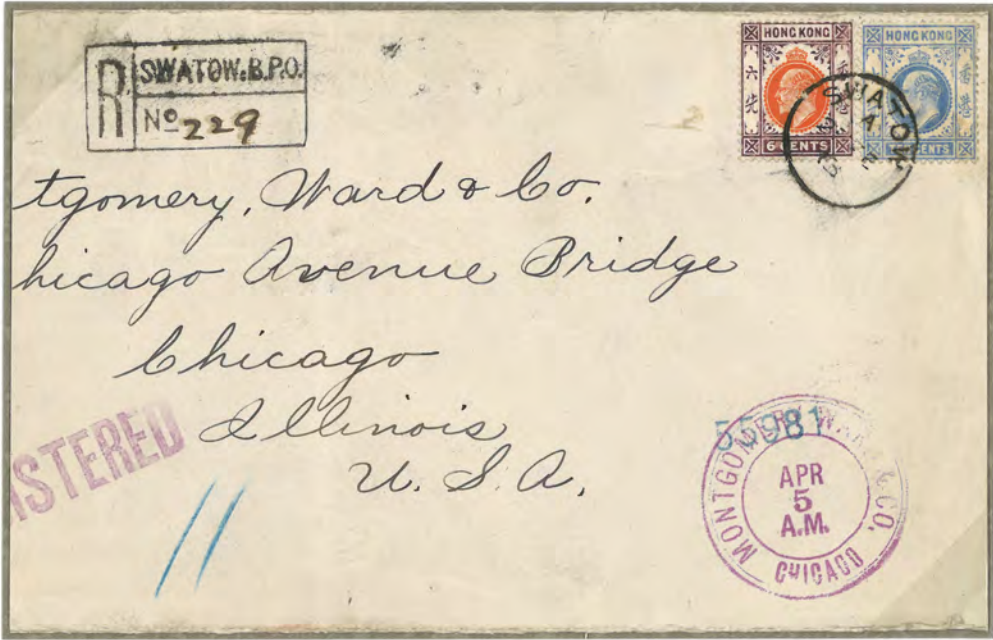 R SWATOW. B.P.O.
No 229
HONG KONG
六
6 CENTS
HONG KONG
CENTS
SWATOW
A
tgomery, Ward & Co.
hicago Avenue Bridge
Chicago
Illinois
U. S. A.
ISTERED
55981
MONTGOMERY WARD & CO.
APR
5
A.M.
CHICAGO